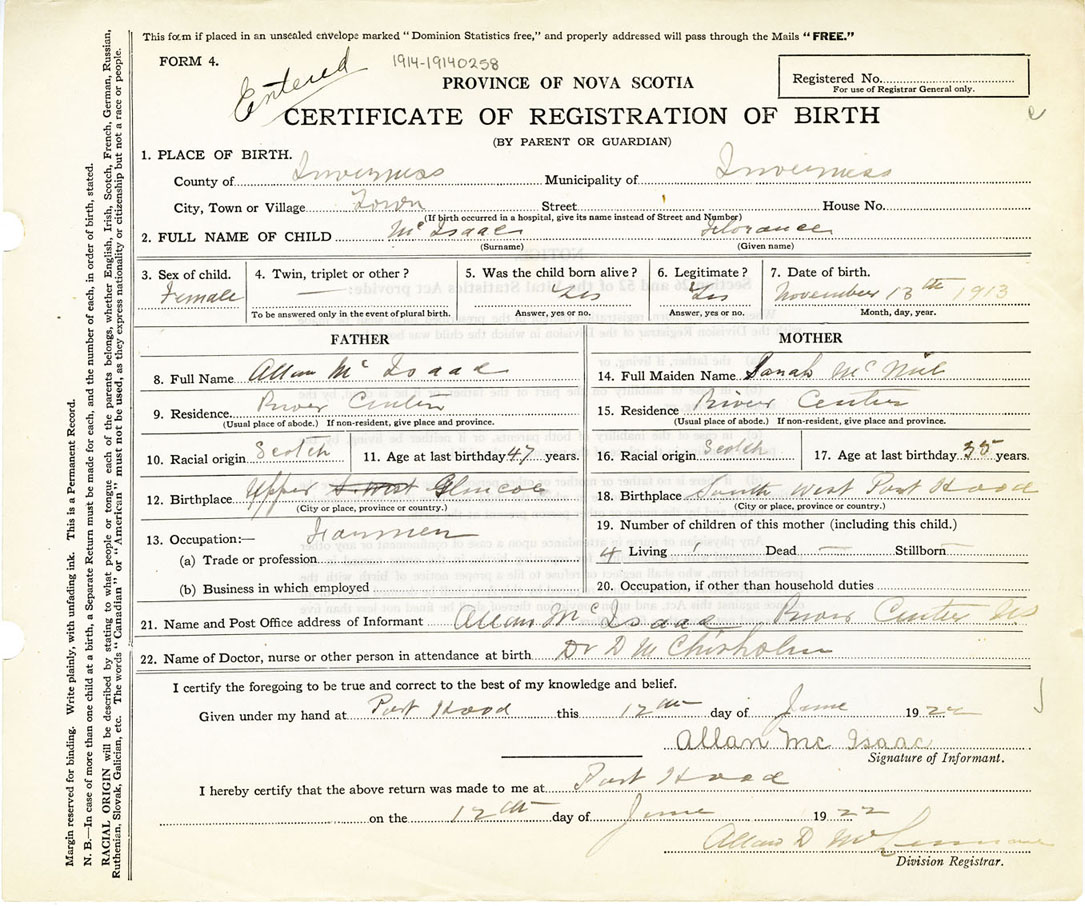 This form if placed in an unsealed envelope marked "Dominion Statistics free," and properly addressed will pass through the Mails "FREE."
FORM 4.
Entered
1914-19140258
PROVINCE OF NOVA SCOTIA
Registered No.
For use of Registrar General only.
CERTIFICATE OF REGISTRATION OF BIRTH
(BY PARENT OR GUARDIAN)
1. PLACE OF BIRTH.
County of Inverness Municipality of Inverness
City, Town or Village Town Street House No.
(If birth occurred in a hospital, give its name instead of Street and Number)
2. FULL NAME OF CHILD Mc Isaac Florance
(Surname) (Given name)
3. Sex of child. 4. Twin, triplet or other? 5. Was the child born alive? 6. Legitimate? 7. Date of birth.
Female — Yes Yes November 13th 1913
To be answered only in the event of plural birth. Answer, yes or no. Answer, yes or no. Month, day, year.
FATHER
8. Full Name Allan Mc Isaac
9. Residence. River Center
(Usual place of abode.) If non-resident, give place and province.
10. Racial origin Scotch 11. Age at last birthday 47 years.
12. Birthplace Upper S. West Glencoe
(City or place, province or country.)
13. Occupation:— Farmer
(a) Trade or profession
(b) Business in which employed
MOTHER
14. Full Maiden Name Sarah Mc Niel
15. Residence River Center
(Usual place of abode.) If non-resident, give place and province.
16. Racial origin Scotch 17. Age at last birthday 35 years.
18. Birthplace South West Port Hood
(City or place, province or country.)
19. Number of children of this mother (including this child.)
4 Living Dead — Stillborn —
20. Occupation, if other than household duties
21. Name and Post Office address of Informant Allan Mc Isaac, River Center NS
22. Name of Doctor, nurse or other person in attendance at birth Dr D M Chisholm
I certify the foregoing to be true and correct to the best of my knowledge and belief.
Given under my hand at Port Hood this 12th day of June 1922
Allan Mc Isaac
Signature of Informant.
I hereby certify that the above return was made to me at Port Hood
on the 12th day of June 1922
Allan D Mc
Division Registrar.
Margin reserved for binding. Write plainly, with unfading ink. This is a Permanent Record.
N. B.—In case of more than one child at a birth, a Separate Return must be made for each, and the number of each, in order of birth, stated.
RACIAL ORIGIN will be described by stating to what people or tongue each of the parents belongs, whether English, Irish, Scotch, French, German, Russian,
Ruthenian, Slovak, Galician, etc. The words "Canadian" or "American" must not be used, as they express nationality or citizenship but not a race or people.